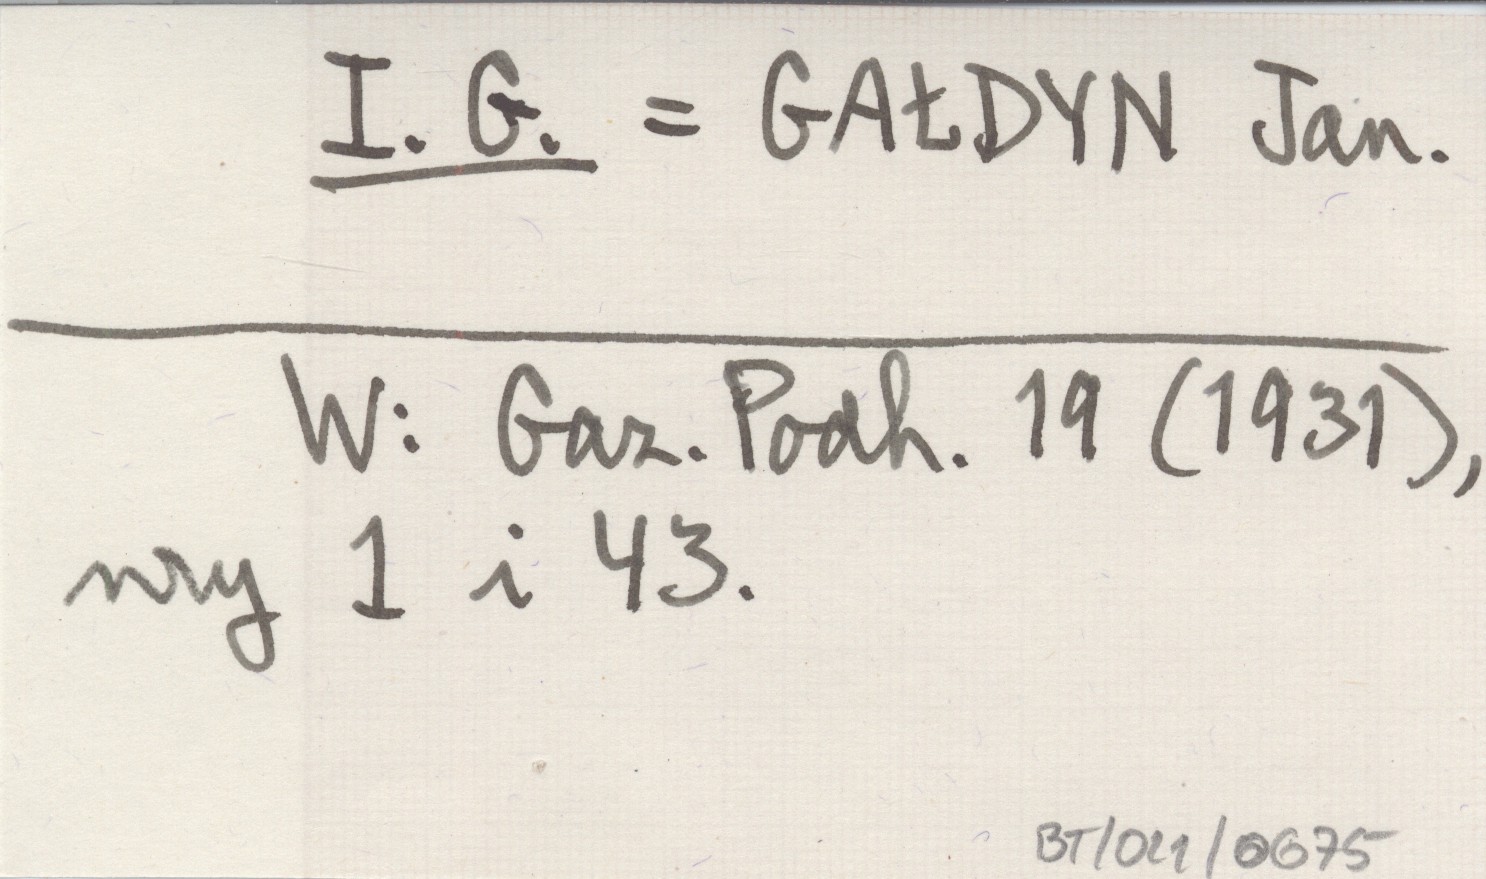 I. G. = GAŁDYN Jan.
W: Gaz. Podh. 19 (1931),
nry 1 i 43.
BT/021/0675